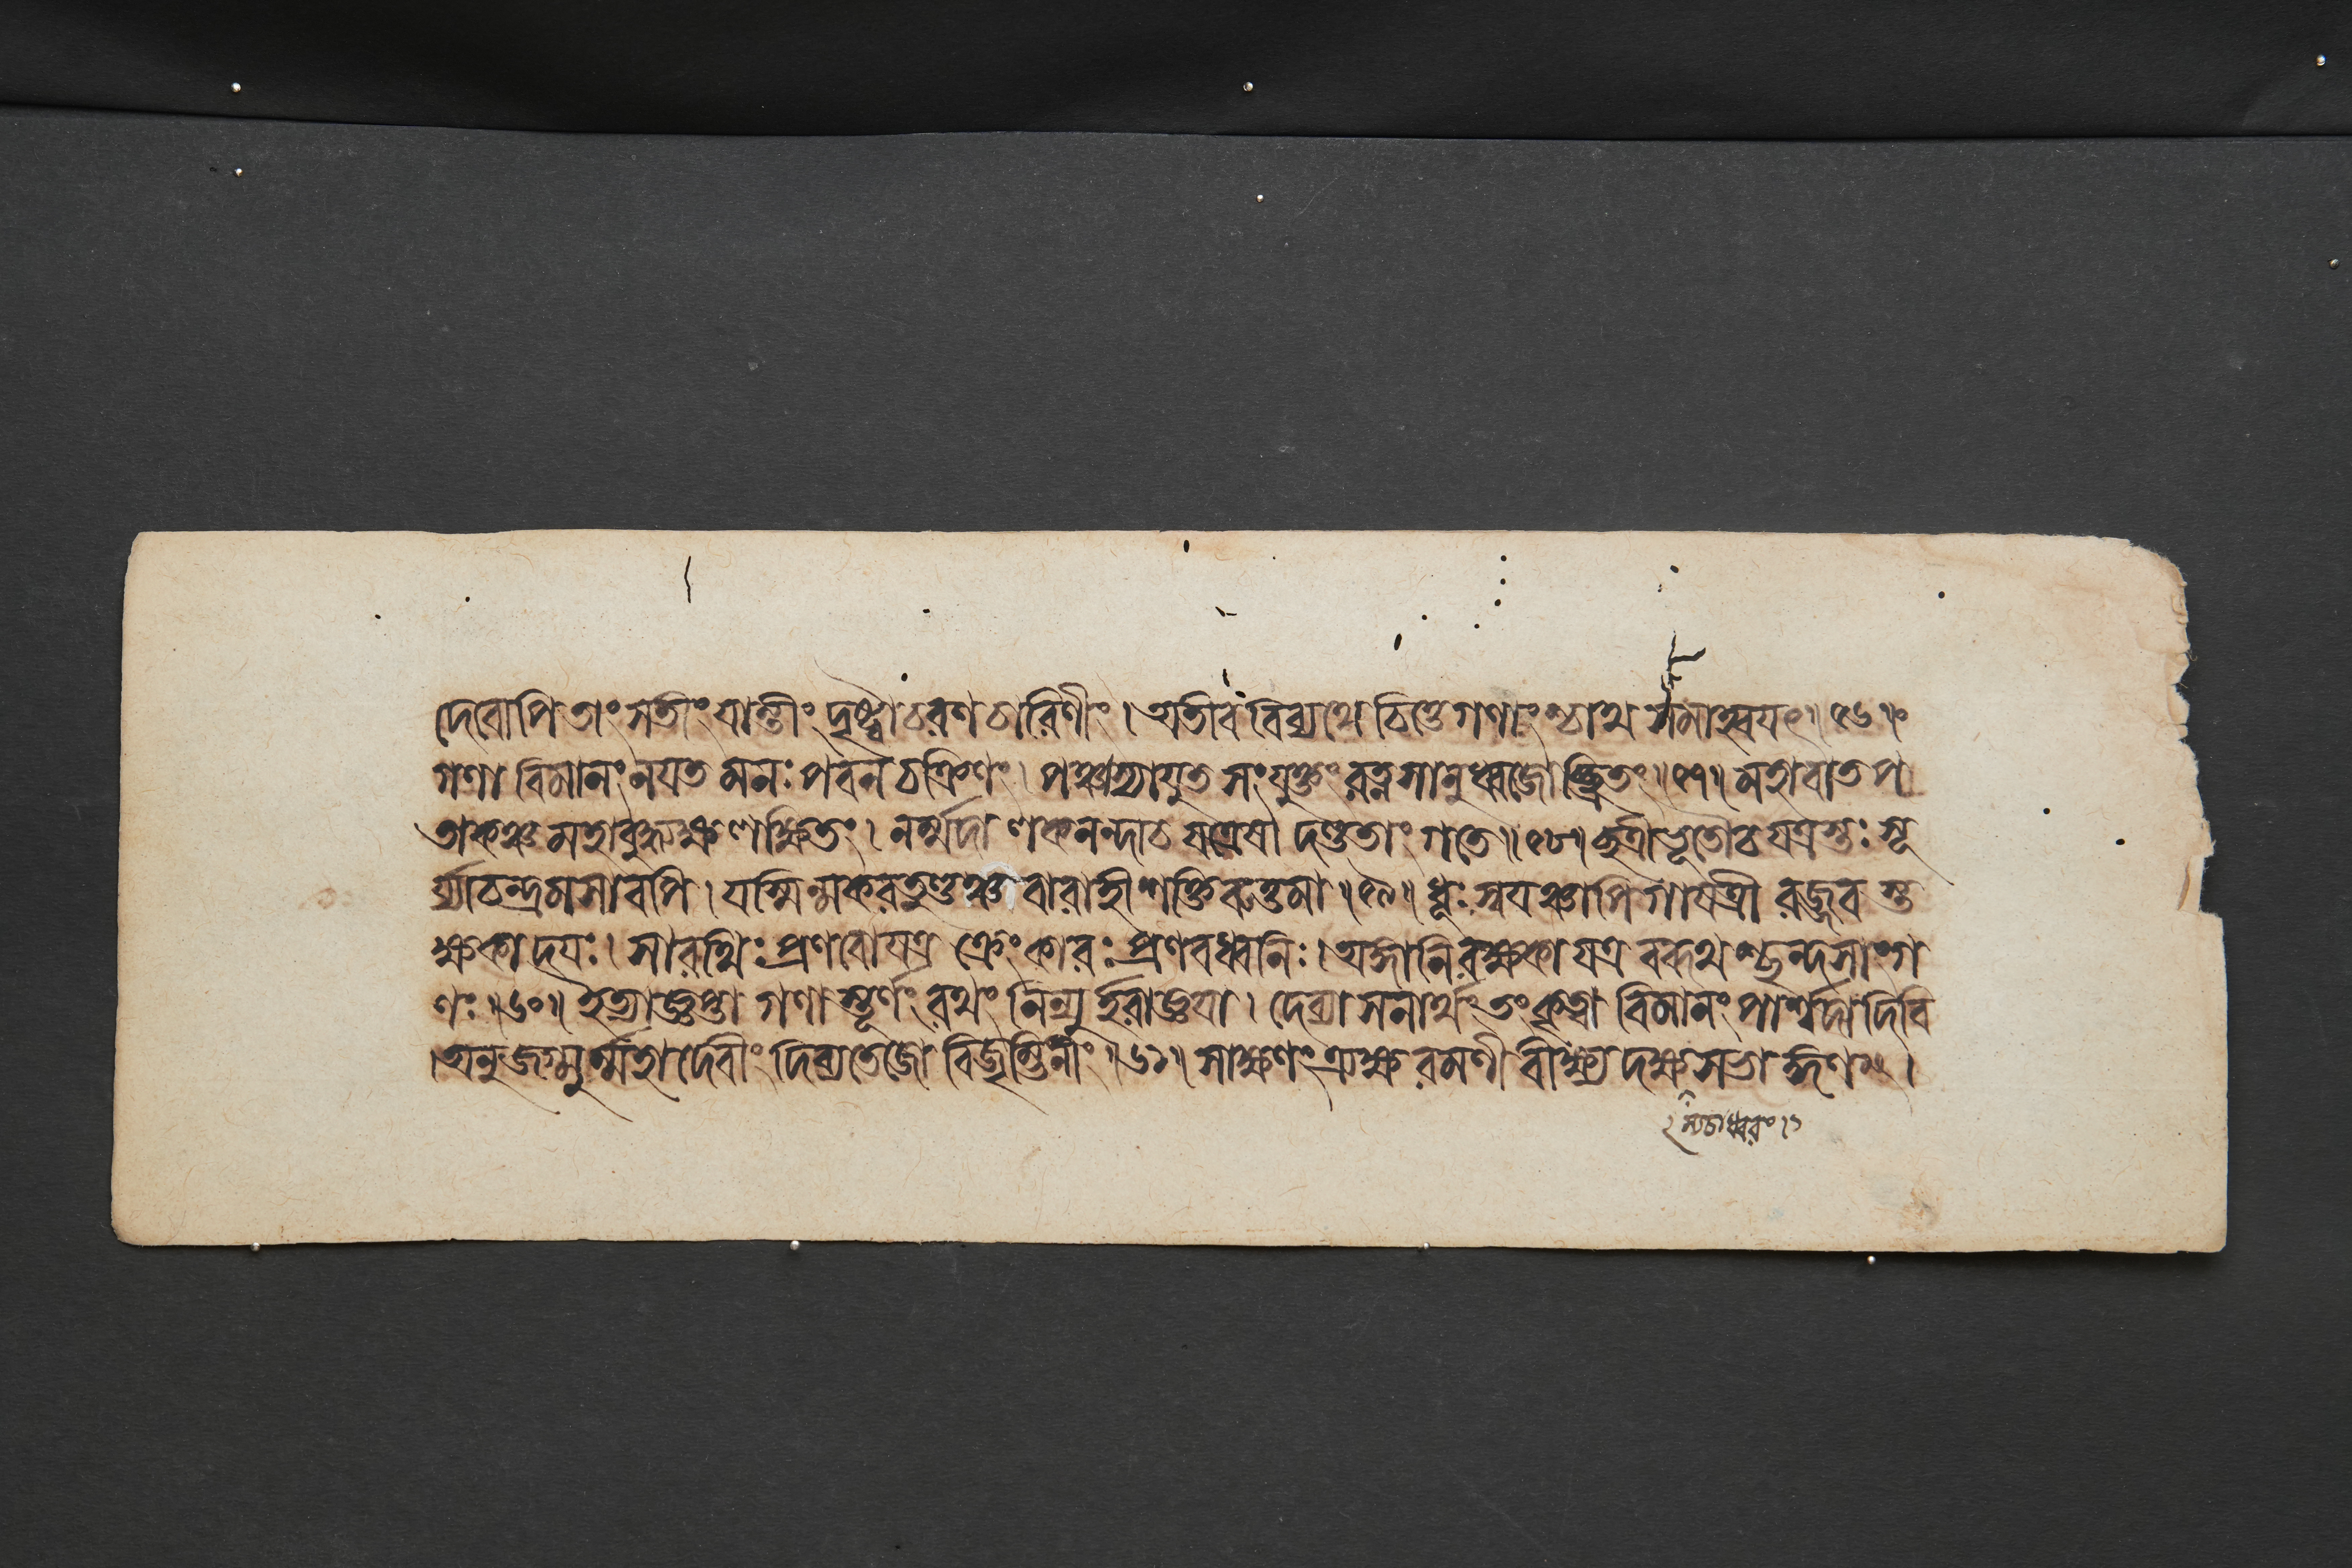 দেবোপি তাং সতীং যান্তীং দৃষ্ট্বা চরণচারিণীং । অতীব বিব্যথে চিত্তে গণাংশ্চাথ সমাহ্বয়ৎ ॥ ৫৬ ॥
গণা বিমানং নয়ত মনঃপবনচক্রিণং । পঞ্চাস্যাযুত সংযুক্তং রত্নসানুধ্বজোচ্ছ্রিতং ॥ ৫৭ ॥ মহাবাতপ
তাকঞ্চ মহাবুদ্ধ্যক্ষলক্ষিতং । নর্ম্মদালকনন্দাচ যত্রেষাদণ্ডতাং গতে ॥ ৫৮ ॥ ছত্রীভূতৌচ যত্রস্তঃ সূ
র্য্যাচন্দ্রমসাবপি । যস্মিন্মকরতুণ্ডঞ্চ বারাহীশক্তিরুত্তমা ॥ ৫৯ ॥ ধূঃ স্বয়ঞ্চাপি গায়ত্রী রজ্জবস্ত
ক্ষকাদয়ঃ । সারথিঃ প্রণবো যত্র ক্রেংকারঃ প্রণবধ্বনিঃ । অঙ্গানি রক্ষকা যত্র বরূথশ্ছন্দসাংগ
ণঃ ॥ ৬০ ॥ ইত্যাজ্ঞপ্তা গণাস্তূর্ণং রথং নিন্যুর্হরাজ্ঞয়া । দেব্যা সনাথং তং কৃত্বা বিমানং পার্শ্বদা দিবি
। অনুজগ্মুর্ম্মহাদেবীং দিব্যতেজো বিজৃম্ভিনীং ॥ ৬১ ॥ সাক্ষণং ত্র্যক্ষরমণী বীক্ষ্য দক্ষসভাঙ্গিণ ।